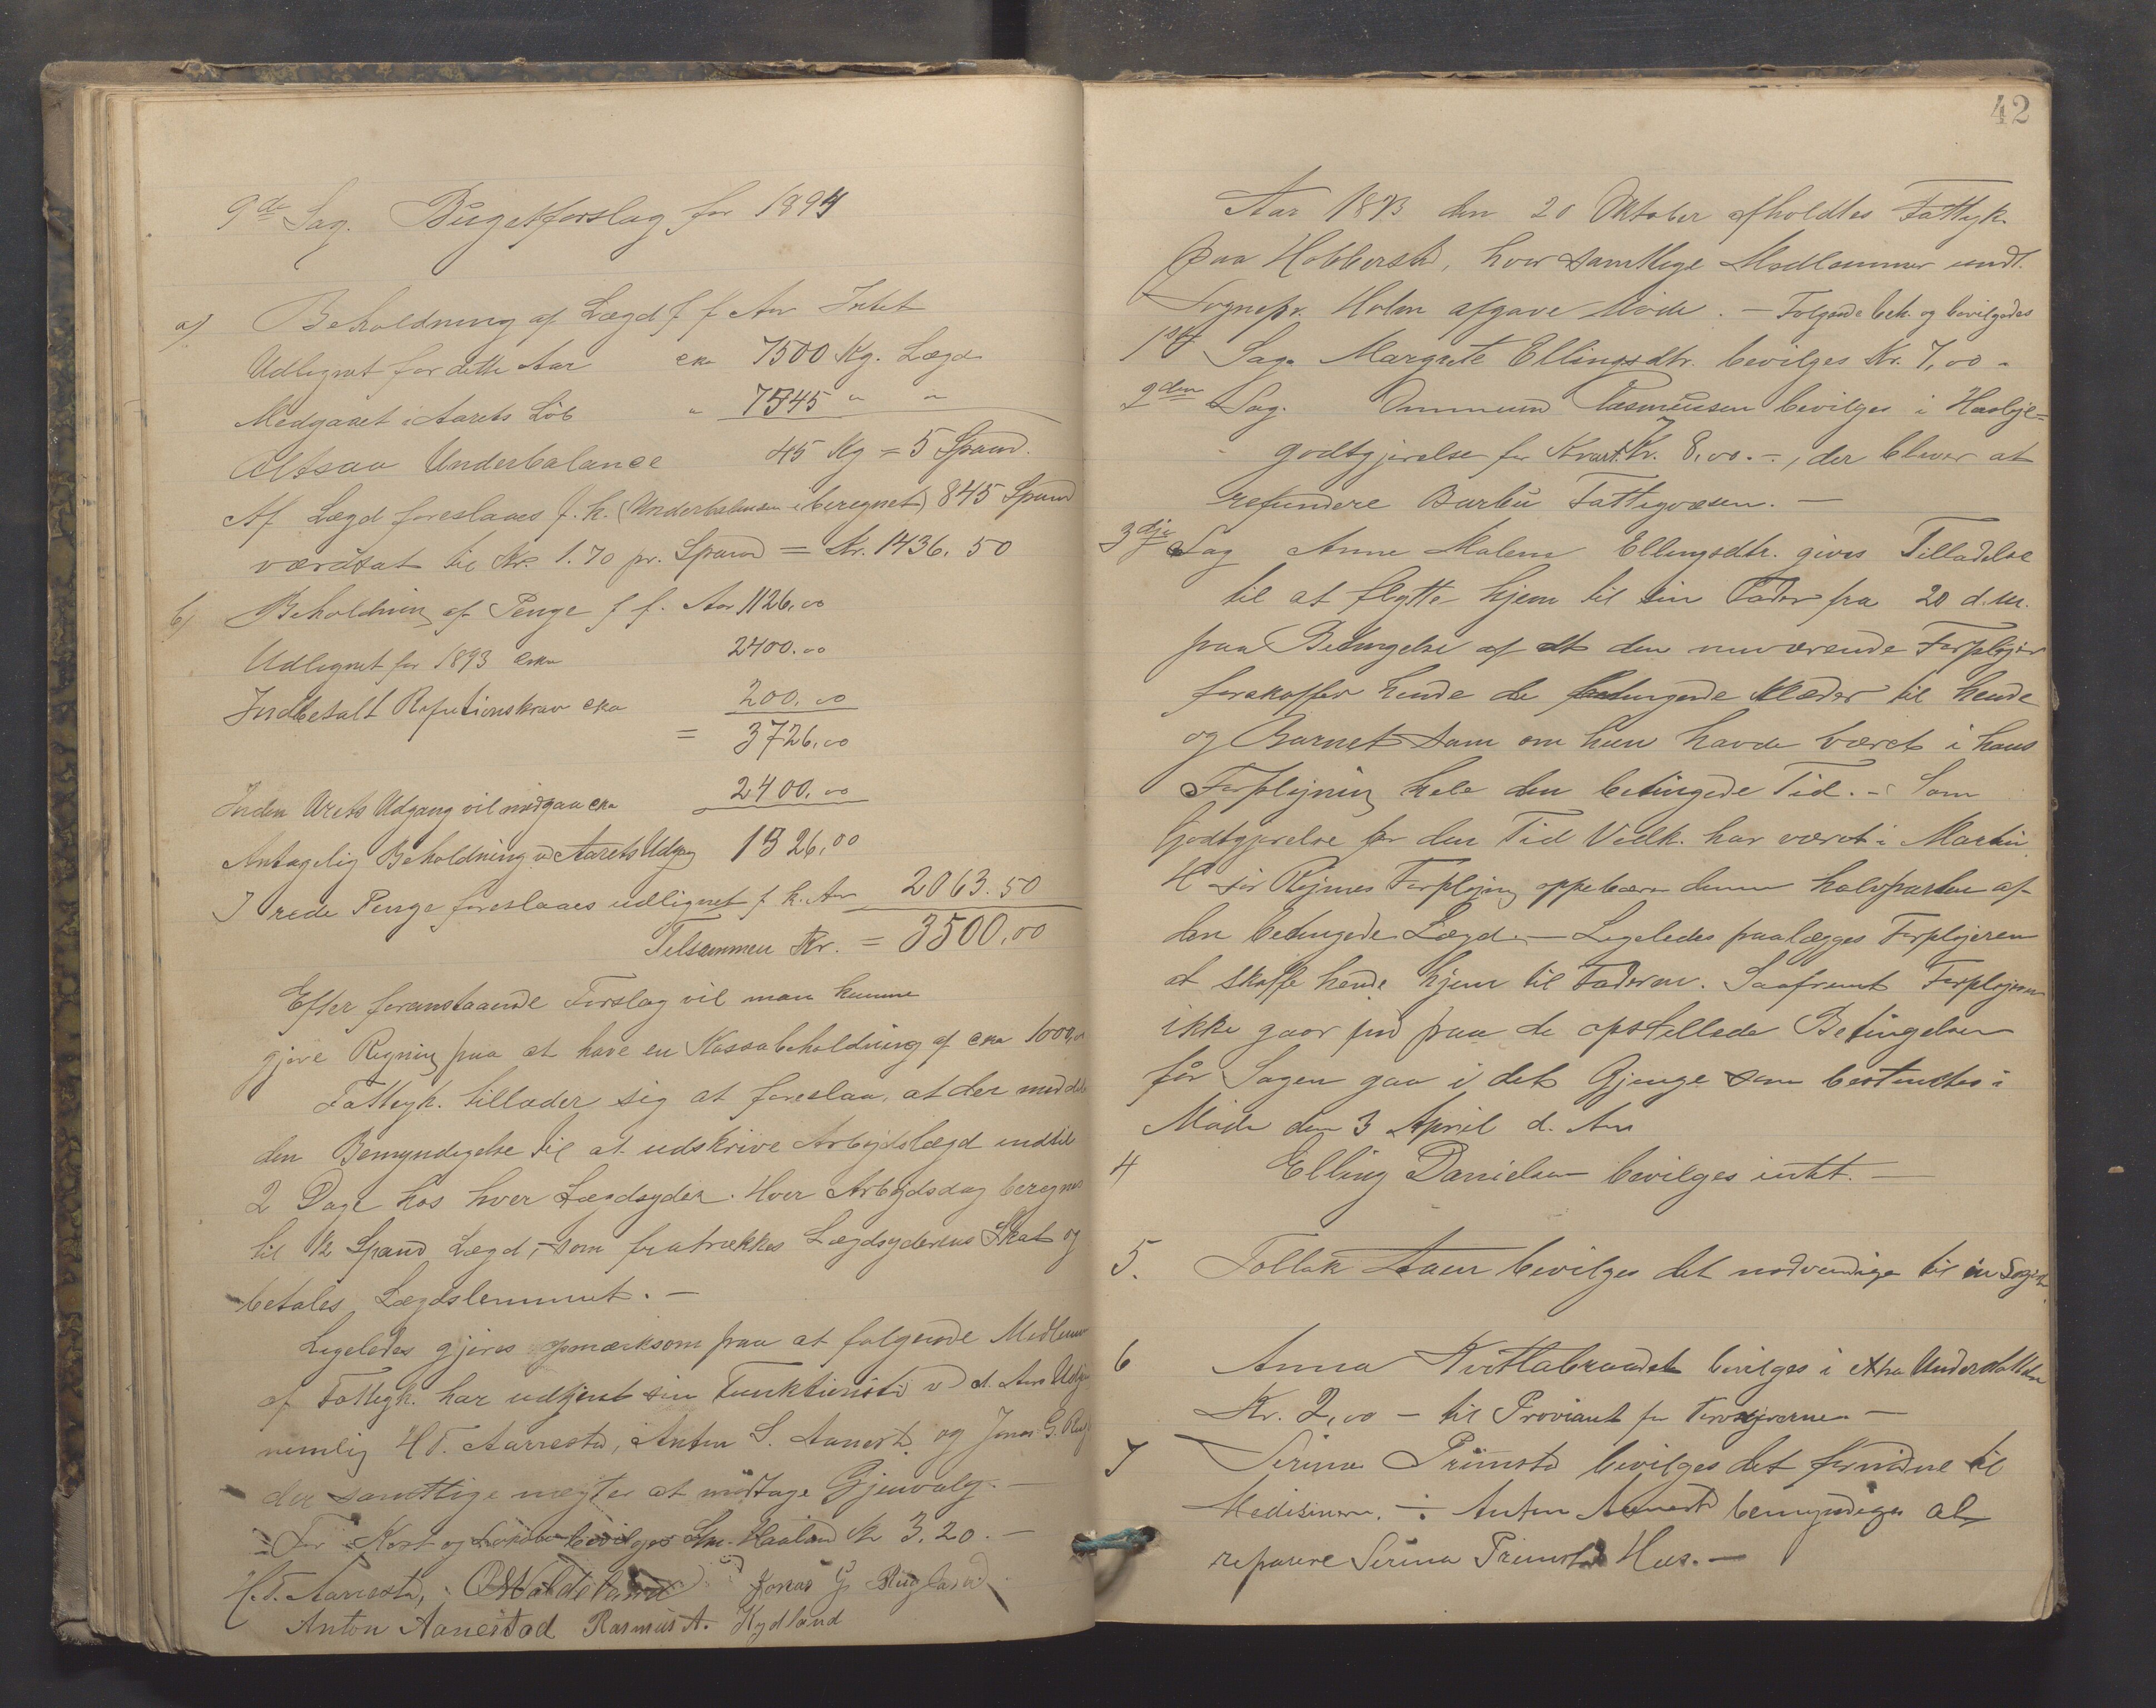 9de Sag. Bugetforslag for 1894
a) Beholdning af Lægd f f Aar Intet
Udlignet for dette Aar cka 7500 Kg. Lægd
Medgaaet i Aarets Løb " 7545 " "
Altsaa Underbalance 45 Kg = 5 Spand.
Af Lægd foreslaaes f. k. (Underbalansen iberegnet) 845 Spand
værdsat til Kr. 1.70 pr. Spand = Kr. 1436,50
b) Beholdning af Penge f f. Aar 1126,00
Udlignet for 1893 cka 2400.00
Indbetalt Refutionskrav cka 200,00
= 3726,00
Inden Arets Udgang vil medgaa cka 2400,00
Antagelig Beholdning v Aarets Udgang 1326,00
I rede Penge foreslaaes udlignet f k. Aar 2063.50
Tilsammen Kr. = 3500,00
Efter foranstaaende Forslag vil man kunne
gjøre Regning paa at have en Kassabeholdning af cka 1000,00
Fattigk. tillader sig at foreslaa, at der meddeles
den Bemyndigelse til at udskrive Arbejdslægd indtil
2 Dage hos hver Lægdsyder. Hver Arbejdsdag beregnes
til ½ Spand Lægd, som fratrækkes Lægdsyderens Skat og
betales Lægdslemmet. —
Ligeledes gjøres opmærksom paa at følgende Medlemmer
af Fattigk. har udtjent sin Funktionstid v d. Aars Udgang
nemlig H T. Aarrestd, Anton S. Aanestd. og Jonas G. Rug
der samtlige nægter at modtage Gjenvalg. —
For Kost og bevilges Haaland Kr 3.20. —
H. T. Aarrestd, Jonas G Rugland
Anton Aanestad Rasmus A. Hydland
42
Aar 1893 den 20 Oktober afholdtes Fattigk.
paa Hobberstd, hvor samtlige Medlemmer undt.
Sognepr. Holm afgave Møde. — Følgende beh. og bevilgedes
1ste Sag. Margrete Ellingsdtr. bevilges Kr. 7,00 -
2den Sag. Ommund Rasmussen bevilges i Husleje=
godtgjørelse for Kvart. Kr. 8,00. -, der bliver at
refundere Barbu Fattigvæsen. —
3dje Sag Anne Malene Ellingsdtr. gives Tilladelse
til at flytte hjem til sin Fader fra 20 d.M.
paa Betingelse af at den nuværende Forplejer
forskaffer hende de betingede Klæder til hende
og Barnet som om hun havde været i hans
Forplejning hele den betingede Tid. - Som
Godtgjørelse for den Tid Vedk. har været i Martin
H Rejmes Forplejning oppebærer denne halvparten af
den betingede Lægd. — Ligeledes paalægges Forplejeren
at skaffe hende hjem til Faderen. Saafremt Forplejeren
ikke gaar ind paa de opstillede Betingelser
får Sagen gaa i det Gjenge som bestemtes i
Møde den 3 April d. Aar
4 Elling Danielsen bevilges intet. —
5. Tollak Stauer bevilges det nødvendige til en Seng
6 Anna Kvitlabrandet bevilges i extra Understøttelse
Kr. 2,00 — til Proviant for Torvskjærerne —
7 Serine Primstd bevilges det fornødne til
Medisinern. ÷ Anton Aanestd bemyndiges at
reparere Serina Primstds Hus. —